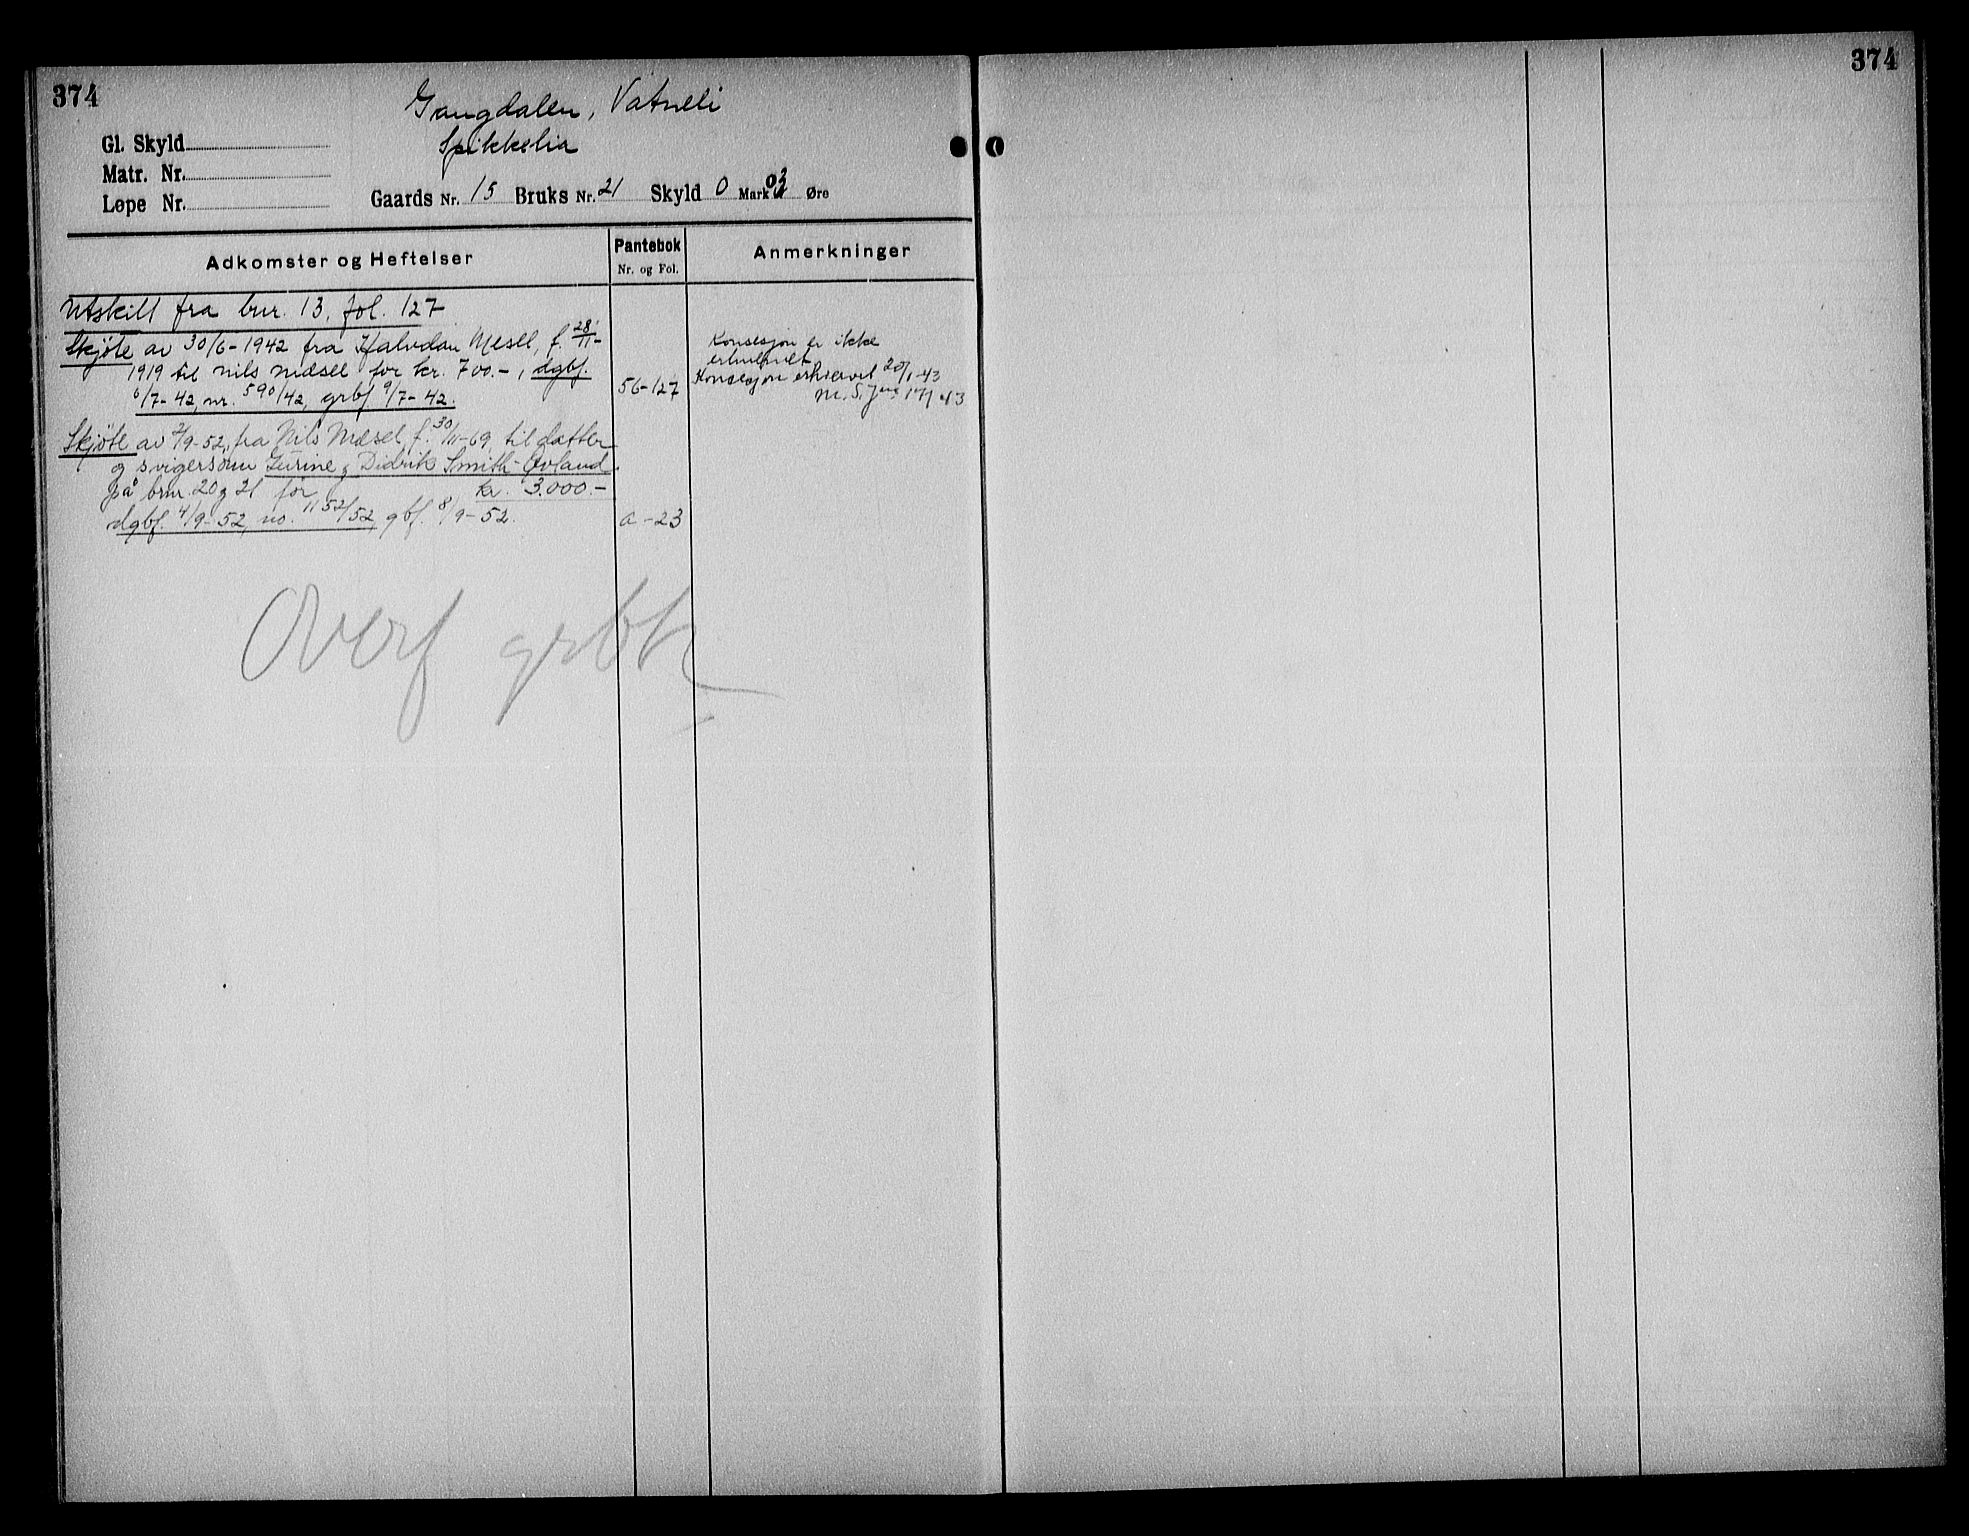 374
374
Gangdalen, Vatneli
Spikkelia
Gl. Skyld
Matr. Nr.
Løpe Nr.
Gaards Nr. 15 Bruks Nr. 21 Skyld 0 Mark 03 Øre
Adkomster og Heftelser
Pantebok
Nr. og Fol.
Anmerkninger
Utskilt fra bnr. 13, fol. 127
Skjøte av 30/6-1942 fra Halvdan Mesel, f. 28/11-
1919 til Nils Mæsel for kr. 700.-, dgbf.
6/7-42, nr. 590/42, grbf. 9/7-42.
56-127
Konsesjon er ikke
erhvervet
Konsesjon erhvervet 20/1-43
Skjøte av 2/9-52, fra Nils Mæsel f. 30/11-69, til datter
og svigersønn Turine og Didrik Smith-Øvland
på bnr. 20 og 21 for kr. 3.000.-
dgbf. 4/9-52, no. 1152/52, gbf. 8/9-52.
a-23
Overf grbk